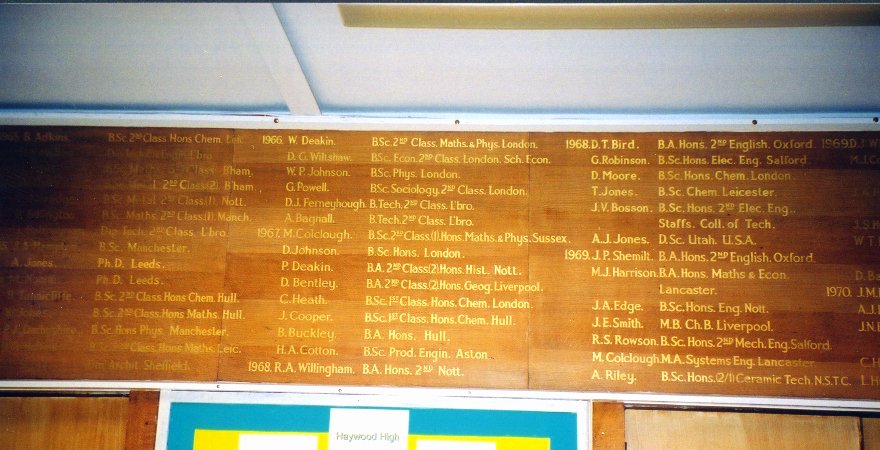 B. Adkins. B.Sc. 2ND Class. Hons Chem. Leic.
L'bro
B'ham.
2ND Class.(2) B'ham
2ND Class.(1). Nott.
B.Sc. Maths. 2ND Class.(1) Manch.
Dip. Tech. 2ND Class. L'bro.
B.Sc. Manchester.
A. Jones. Ph.D. Leeds.
Ph.D. Leeds.
B.Sc. 2ND Class. Hons Chem. Hull.
B.Sc. 2ND Class. Hons Maths. Hull.
B.Sc. Hons Phys. Manchester.
Class. Hons Maths. Leic.
Archit. Sheffield.
1966. W. Deakin. B.Sc. 2ND Class. Maths. & Phys. London.
D. G. Wiltshaw. B.Sc. Econ. 2ND Class. London. Sch. Econ.
W. P. Johnson. B.Sc. Phys. London.
G. Powell. B.Sc. Sociology. 2ND Class. London.
D.J. Ferneyhough. B.Tech. 2ND Class. L'bro.
A. Bagnall. B.Tech. 2ND Class. L'bro.
1967. M. Colclough. B.Sc. 2ND Class.(1). Hons. Maths. & Phys. Sussex.
D. Johnson. B.Sc. Hons. London.
P. Deakin. B.A. 2ND Class.(2) Hons. Hist. Nott.
D. Bentley. B.A. 2ND Class.(2) Hons. Geog. Liverpool.
C. Heath. B.Sc. 1ST Class. Hons. Chem. London.
J. Cooper. B.Sc. 1ST Class. Hons. Chem. Hull.
B. Buckley. B.A. Hons. Hull.
H.A. Cotton. B.Sc. Prod. Engin. Aston.
1968. R.A. Willingham. B.A. Hons. 2ND Nott.
1968. D.T. Bird. B.A. Hons. 2ND English. Oxford.
G. Robinson. B.Sc. Hons. Elec. Eng. Salford.
D. Moore. B.Sc. Hons. Chem. London.
T. Jones. B.Sc. Chem. Leicester.
J.V. Bosson. B.Sc. Hons. 2ND Elec. Eng.
Staffs. Coll. of Tech.
A.J. Jones. D.Sc. Utah. U.S.A.
1969. J.P. Shemilt. B.A. Hons. 2ND English. Oxford.
M.J. Harrison. B.A. Hons. Maths & Econ.
Lancaster.
J.A. Edge. B.Sc. Hons. Eng. Nott.
J.E. Smith. M.B. Ch.B. Liverpool.
R.S. Rowson. B.Sc. Hons. 2ND Mech. Eng. Salford.
M. Colclough. M.A. Systems Eng. Lancaster.
A. Riley. B.Sc. Hons. (2/1) Ceramic Tech. N.S.T.C.
1969.
1970. J.M.
Haywood High